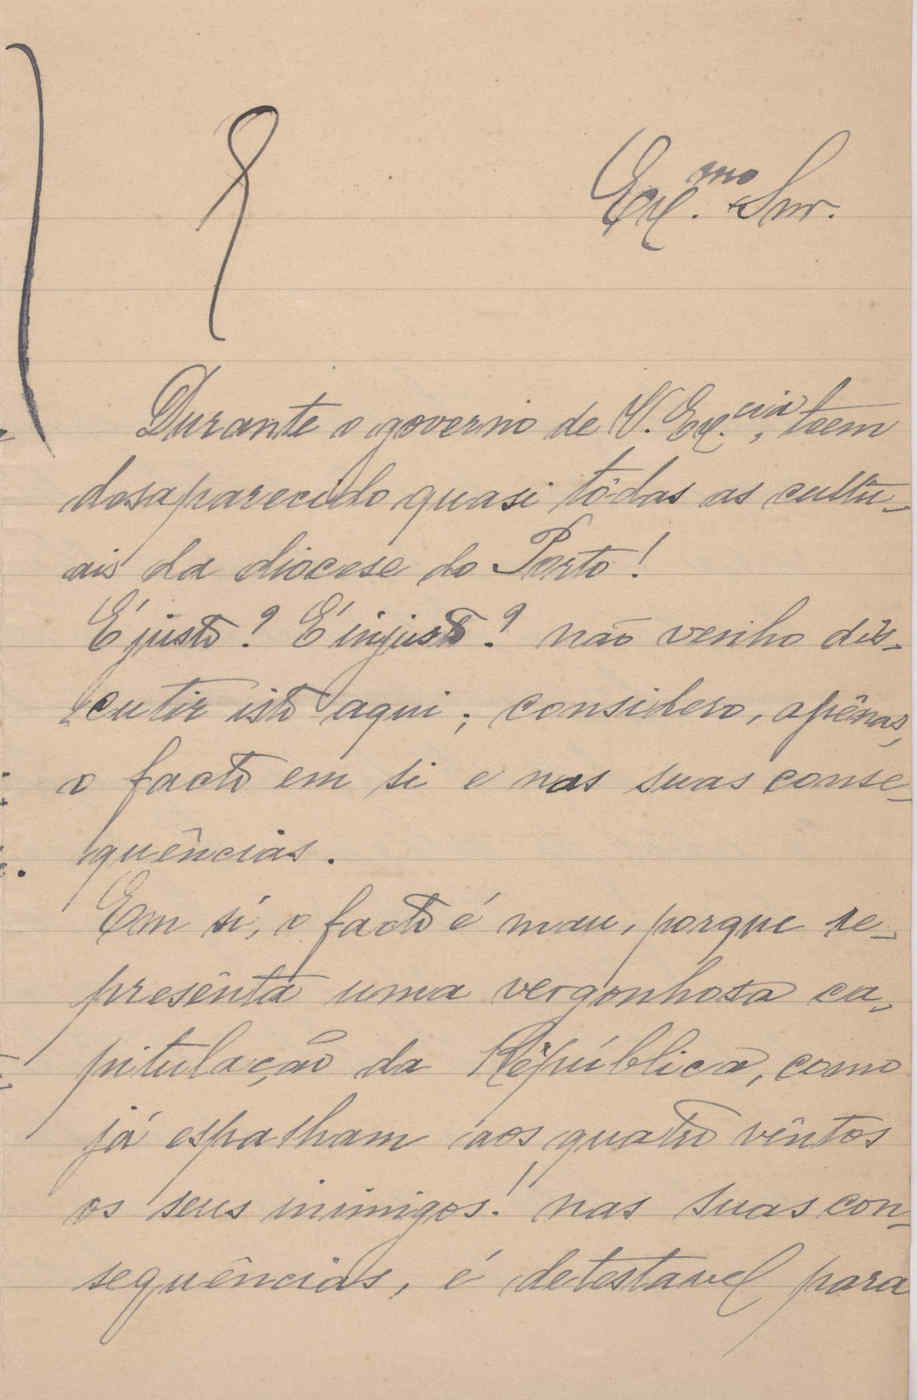 Ex.mo Snr.
Durante o governo de V. Ex.cia, teem
desaparecido quasi tôdas as cultu-
ais da diocese do Porto!
É justo? É injusto? não venho dis-
cutir isto aqui; considero, apênas,
o facto em si e nas suas conse-
quências.
Em sí, o facto é mau, porque re-
presênta uma vergonhosa ca-
pitulação da República, como
já espalham aos quatro vêntos
os seus inimigos! nas suas con-
sequências, é detestavel para